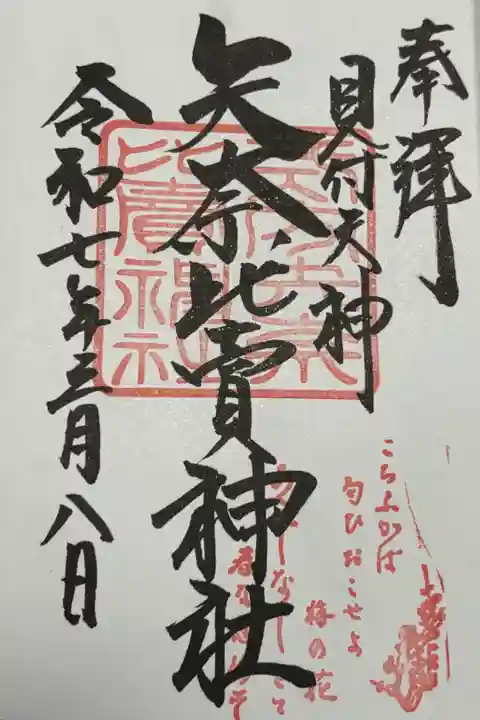 奉拝
見付天神
矢奈比賣神社
令和七年三月八日
こちふかば
匂ひおこせよ
梅の花
あるじなしとて
春な忘れそ